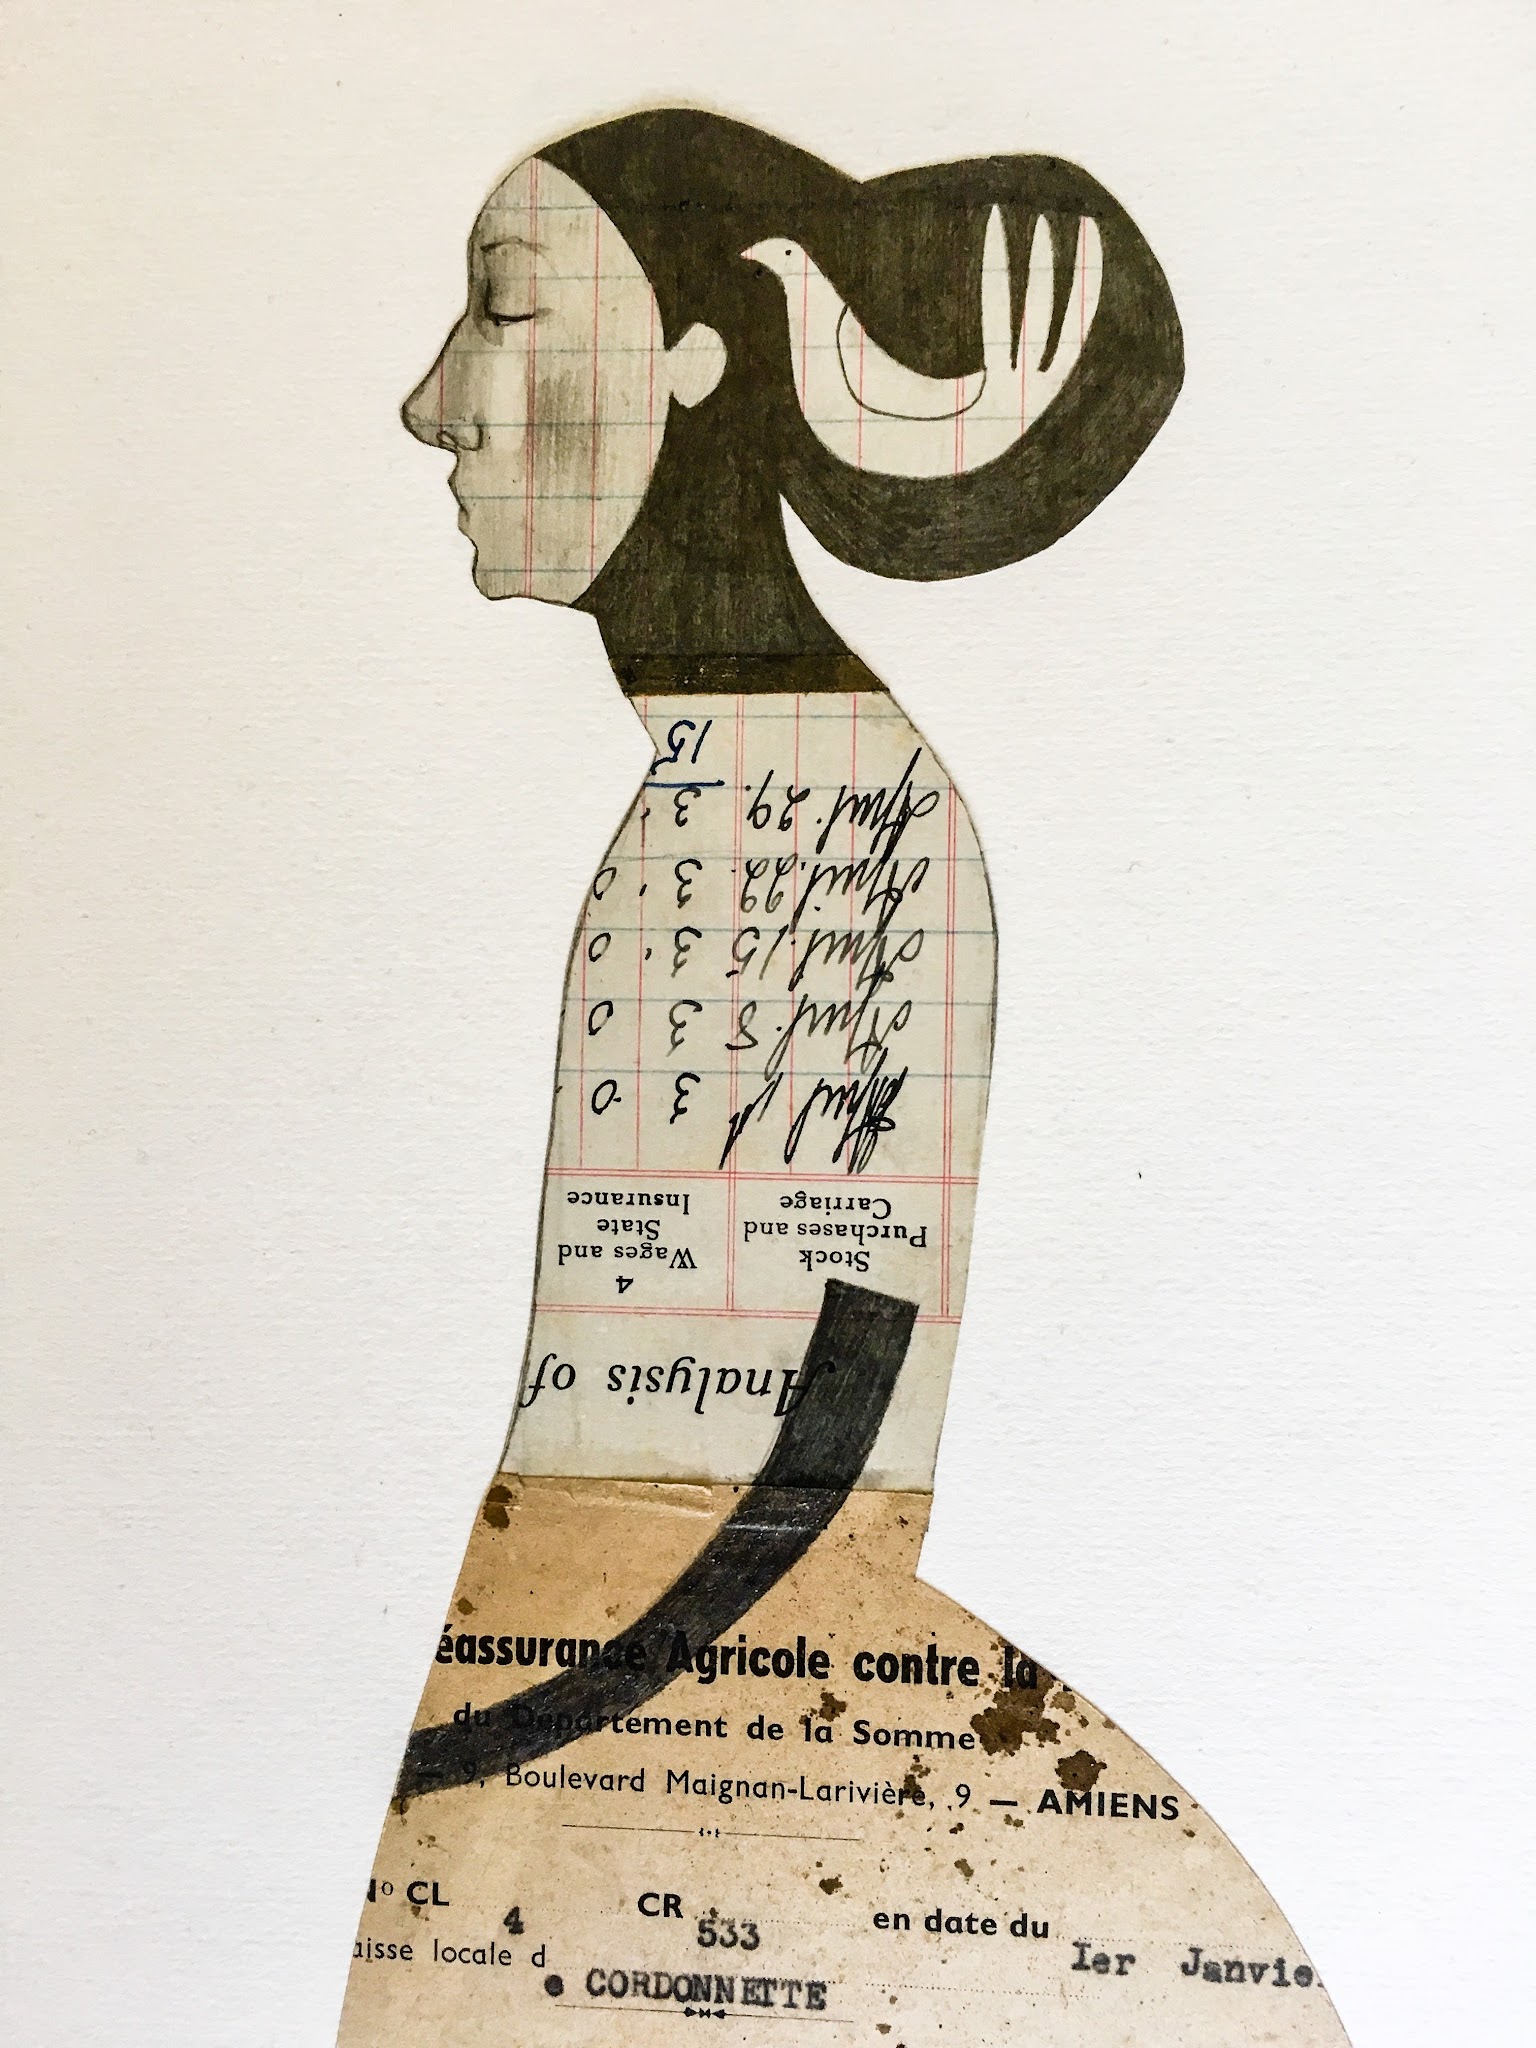 Analysis of
Stock
Purchases and
Carriage
4
Wages and
State
Insurance
April 1st 3 0
April 8 3 0
April 15 3 0
April 22 3 0
April 29 3
15
éassurance Agricole contre la
du Département de la Somme
9, Boulevard Maignan-Larivière, 9 — AMIENS
Nº CL 4 CR 533 en date du Ier Janvie
aisse locale de CORDONNETTE